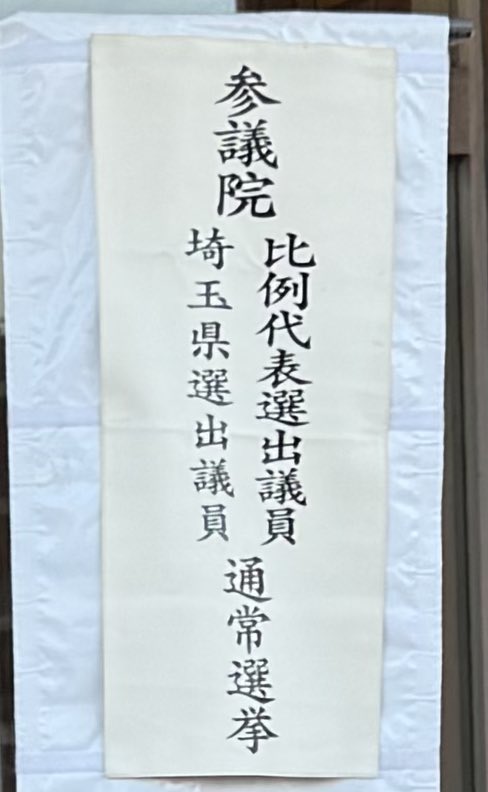 参議院
比例代表選出議員
埼玉県選出議員
通常選挙